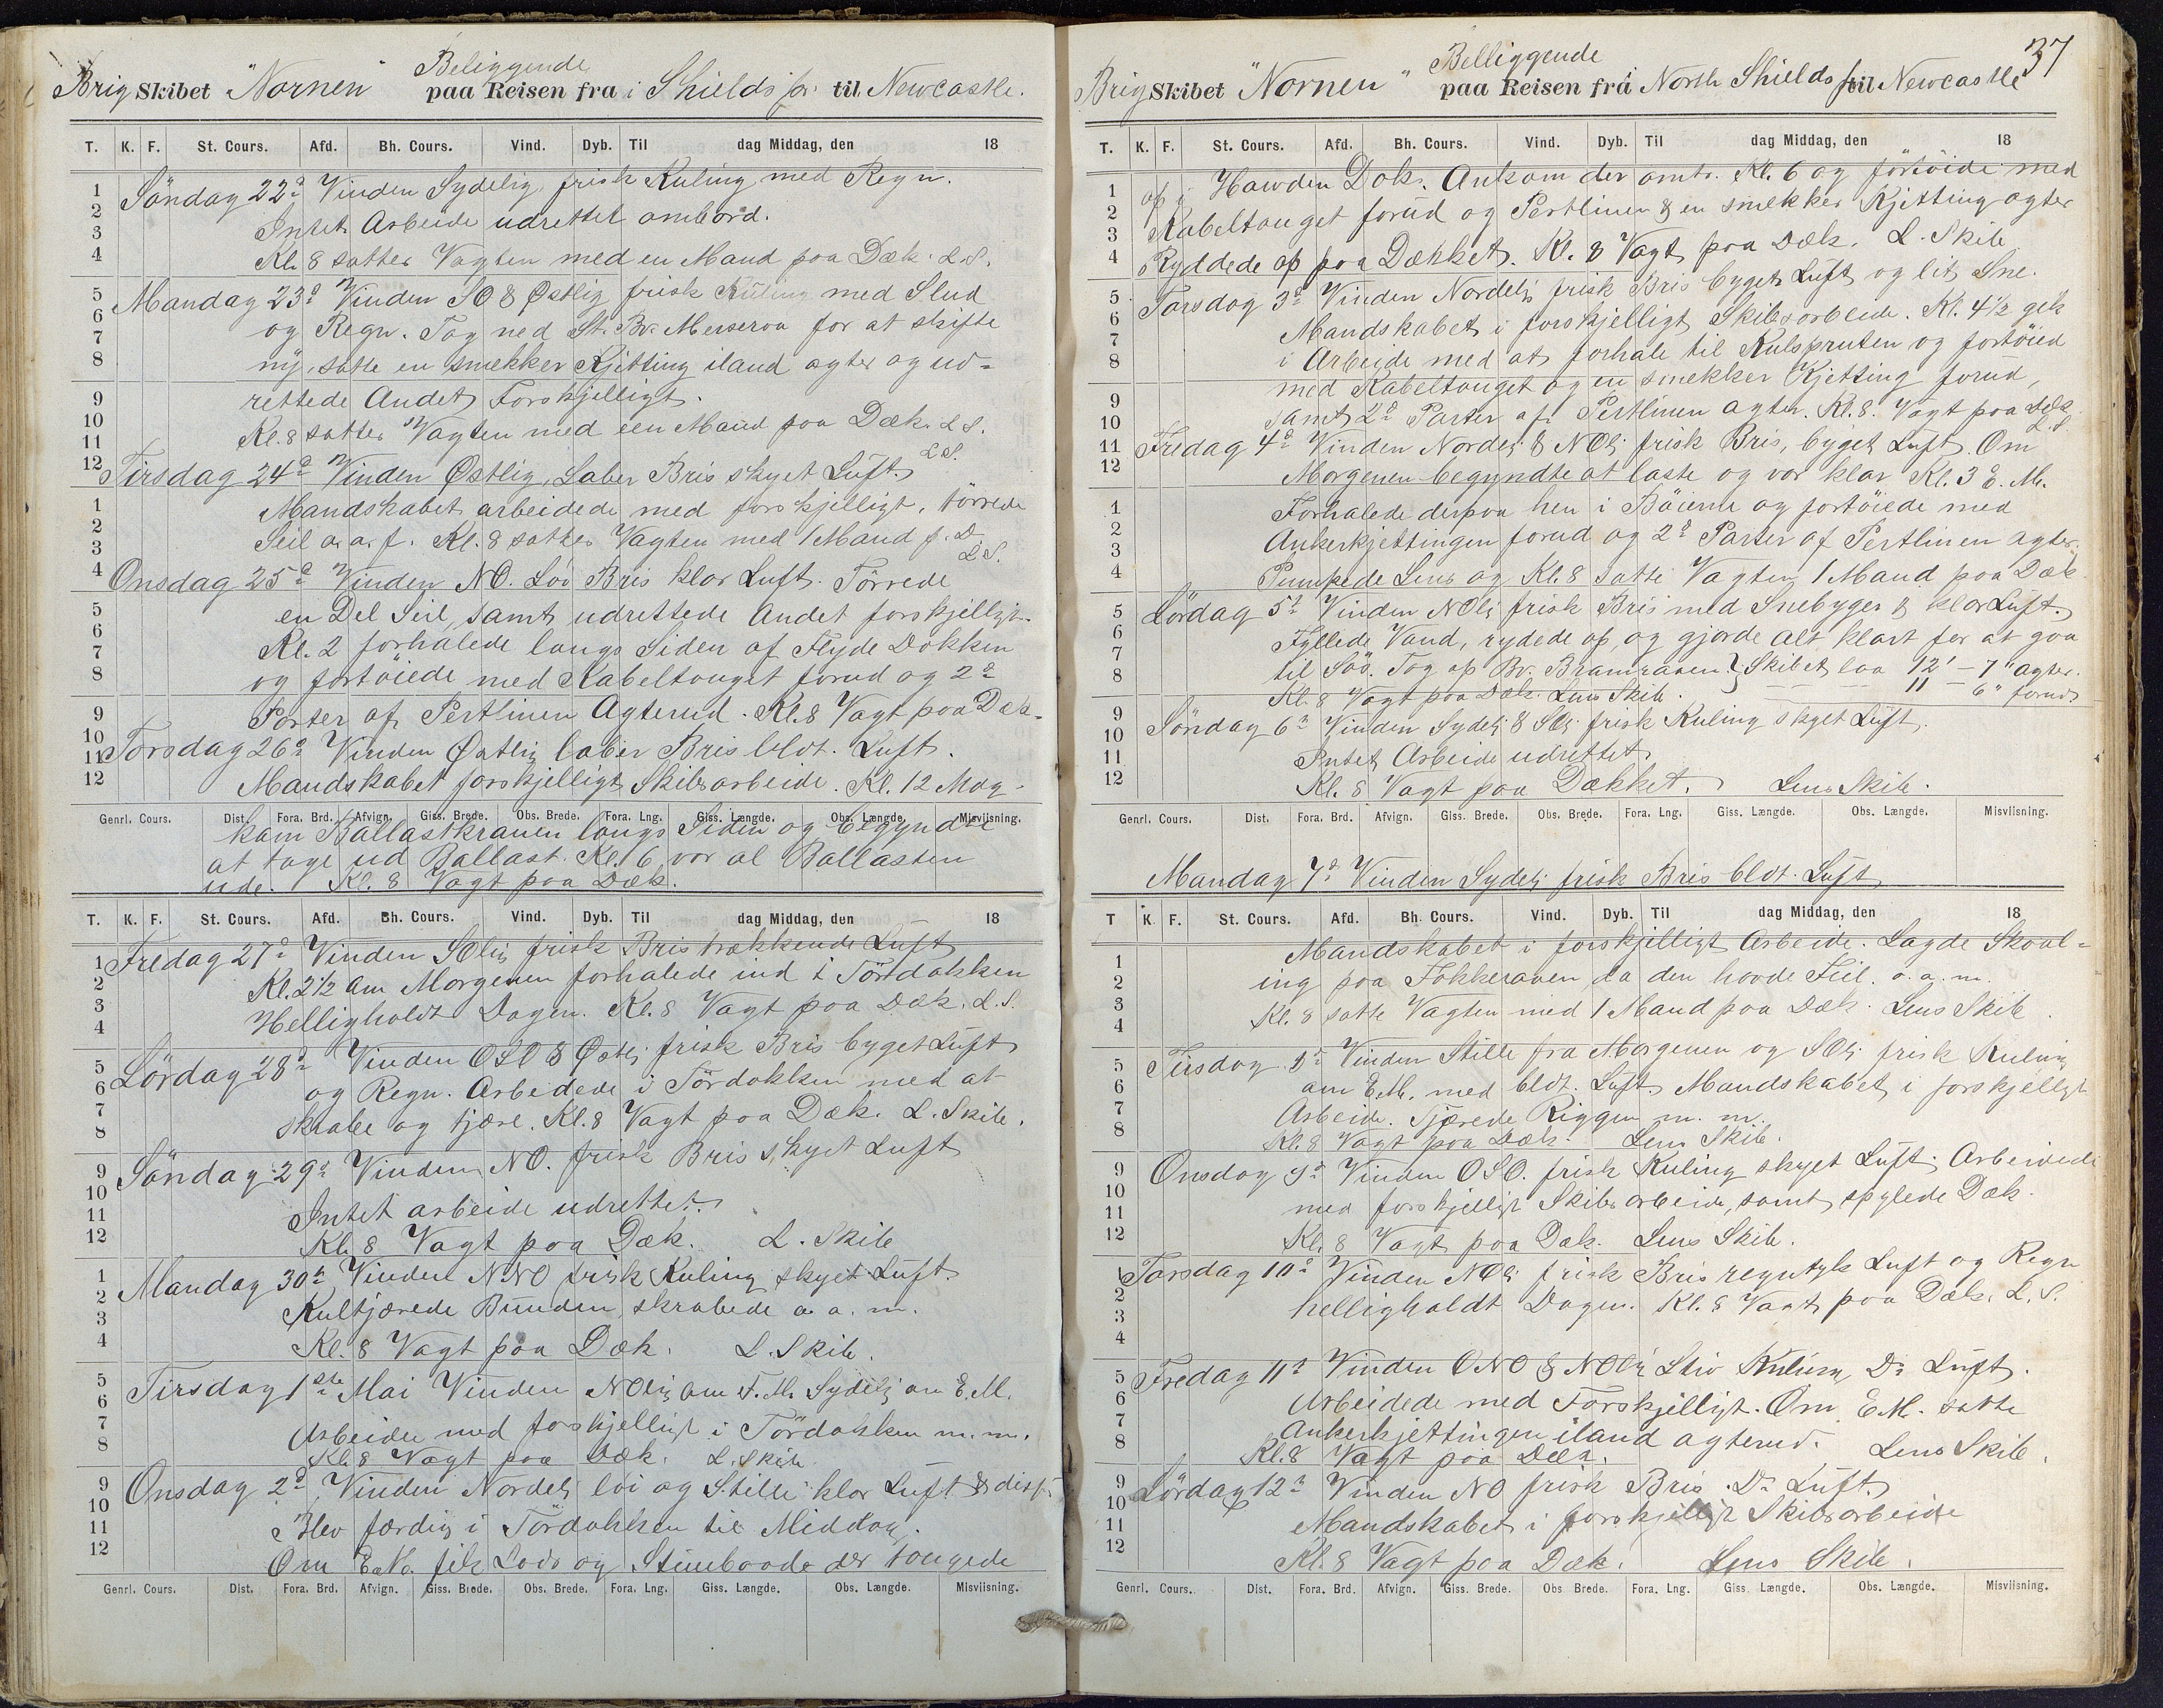 Beliggende
Brig Skibet "Nornen" paa Reisen fra i Shields for til Newcastle.
T. K. F. St. Cours. Afd. Bh. Cours. Vind. Dyb. Til dag Middag, den 18
Söndag 22d Vinden Sydelig frisk Kuling med Regn.
Intet Arbeide udrettet ombord.
Kl. 8 sattes Vagten med en Mand paa Dæk. L.S.
Mandag 23d Vinden SO & Østlig frisk Kuling med Slud
og Regn. Tog ned St. Bv. Merseraa for at skifte
ny, satte en smekker Kjetting iland agter og ud-
rettede Andet Forskjelligt.
Kl. 8 sattes Vagten med een Mand paa Dæk. L.S.
Tirsdag 24d Vinden Østlig, Laber Bris skyet Luft. L.S.
Mandskabet arbeidede med forskjelligt, törrede
Seil o.a.f. Kl. 8 sattes Vagten med 1 Mand p. D.
L.S.
Onsdag 25d Vinden NO. Löi Bris klar Luft. Törrede
en Del Seil, samt udrettede Andet forskjelligt.
Kl. 2 forhalede langs Siden af Flyde Dokken
og fortöiede med Kabeltouget forud og 2d
Parter af Pertlinen Agterud. Kl. 8 Vagt paa Dæk.
Torsdag 26d Vinden Østlig laber Bris bldt. Luft.
Mandskabet forskjelligt Skibsarbeide. Kl. 12 Mag-
Genrl. Cours. Dist. Fora. Brd. Afvign. Giss. Brede. Obs. Brede. Fora. Lng. Giss. Længde. Obs. Længde. Misviisning.
kam Ballastkranen langs Siden og begyndte
at tage ud Ballast. Kl. 6 var al Ballasten
ude. Kl. 8 Vagt paa Dæk.
T. K. F. St. Cours. Afd. Bh. Cours. Vind. Dyb. Til dag Middag, den 18
Fredag 27d Vinden SOlig frisk Bris trækkende Luft
Kl. 2½ om Morgenen forhalede ind i Tördokken
Helligholdt Dagen. Kl. 8 Vagt paa Dæk. L.S.
Lördag 28d Vinden OSO & Østlj frisk Bris byget Luft
og Regn. Arbeidede i Tördokken med at
skrabe og tjære. Kl. 8 Vagt paa Dæk. L. Skib.
Söndag 29d Vinden NO. frisk Bris skyet Luft
Intet arbeide udrettet.
Kl. 8 Vagt paa Dæk. L. Skib
Mandag 30d Vinden NNO frisk Kuling skyet Luft.
Kultjærede Bunden, skrabede o. a. m.
Kl. 8 Vagt paa Dæk. L. Skib.
Tirsdag 1ste Mai Vinden NOlig om F.M. Sydelj om E.M.
Arbeidee med forskjelligt i Tördokken m.m.
Kl. 8 Vagt paa Dæk. L. Skib
Onsdag 2d Vinden Nordelj löi og Stille klar Luft & disf.
Blev færdig i Tördokken til Middag.
Om E.M. fik Lods og Stimbaade der tougede
Genrl. Cours. Dist. Fora. Brd. Afvign. Giss. Brede. Obs. Brede. Fora. Lng. Giss. Længde. Obs. Længde. Misviisning.
37
Belliggende
Brig Skibet "Nornen" paa Reisen fra i North Shields til Newcastle
T. K. F. St. Cours. Afd. Bh. Cours. Vind. Dyb. Til dag Middag, den 18
op i Hawden Dok. Ankom der omtr. Kl. 6 og förtöide med
Kabeltouget forud og Pertlinen & en smekker Kjetting agter
Ryddede op paa Dækket. Kl. 8 Vagt paa Dæk. L. Skib
Torsdag 3d Vinden Nordelj frisk Bris byget Luft og lit Sne.
Mandskabet i forskjelligt Skibsarbeide. Kl. 4½ gik
i Arbeide med at forhale til Kulspruten og fortöied
med Kabeltouget og en smekker Kjetting forud,
samt 2d Parter af Pertlinen agter. Kl. 8. Vagt paa Dæk
L.S.
Fredag 4d Vinden Nordelj & NOlj frisk Bris, byget Luft. Om
Morgenen begyndte at laste og var klar Kl. 3 E.M.
Forhalede derpaa hen i Böierne og fortöiede med
Ankerkjettingen forud og 2d Parter af Pertlinen agter.
Pumpede Lens og Kl. 8 satte Vagten 1 Mand paa Dæk
Lördag 5d Vinden NOlj frisk Bris med Snebyger & klar Luft.
Fyllede Vand, rydede op, og gjorde alt klart for at gaa
til Söö. Tog op Bv. Bramraaen } Skibet laa 12' - 7" agter.
Kl. 8 Vagt paa Dæk. Lens Skib. 11 - 6" forud
Söndag 6d Vinden Sydelj & SOlj frisk Kuling skyet Luft.
Intet Arbeide udrettet
Kl. 8 Vagt paa Dækket. Lens Skib.
Genrl. Cours. Dist. Fora. Brd. Afvign. Giss. Brede. Obs. Brede. Fora. Lng. Giss. Længde. Obs. Længde. Misviisning.
Mandag 7d Vinden Sydelj frisk Bris bldt. Luft
T K. F. St. Cours. Afd. Bh. Cours. Vind. Dyb. Til dag Middag, den 18
Mandskabet i forskjelligt Arbeide. Lagde Skaal-
ing paa Fokkeraaen da den havde Feil. o. a. m.
Kl. 8 satte Vagten med 1 Mand paa Dæk. Lens Skib.
Tirsdag 8d Vinden Stille fra Morgenen og SOlj frisk Kuling
om E.M. med bldt. Luft. Mandskabet i forskjelligt
Arbeide. Tjærede Riggen m. m.
Kl. 8 Vagt paa Dæk. Lens Skib.
Onsdag 9d Vinden OSO. frisk Kuling skyet Luft. Arbeidede
med forskjelligt Skibsarbeide, samt spylede Dæk.
Kl. 8 Vagt paa Dæk. Lens Skib.
Torsdag 10d Vinden NOlj frisk Bris regntyk Luft og Regn
helligholdt Dagen. Kl. 8 Vagt paa Dæk. L.S.
Fredag 11d Vinden ONO & NOlj Stiv Kuling Do Luft.
Arbeidede med Forskjelligt. Om E.M. satte
Ankerkjettingen iland agterud. Lens Skib.
Kl. 8 Vagt paa Dæk.
Lördag 12d Vinden NO frisk Bris. Do Luft.
Mandskabet i forskjelligt Skibsarbeide
Kl. 8 Vagt paa Dæk. Lens Skib.
Genrl. Cours. Dist. Fora. Brd. Afvign. Giss. Brede. Obs Brede. Fora. Lng. Giss Længde. Obs. Længde. Misviisning.